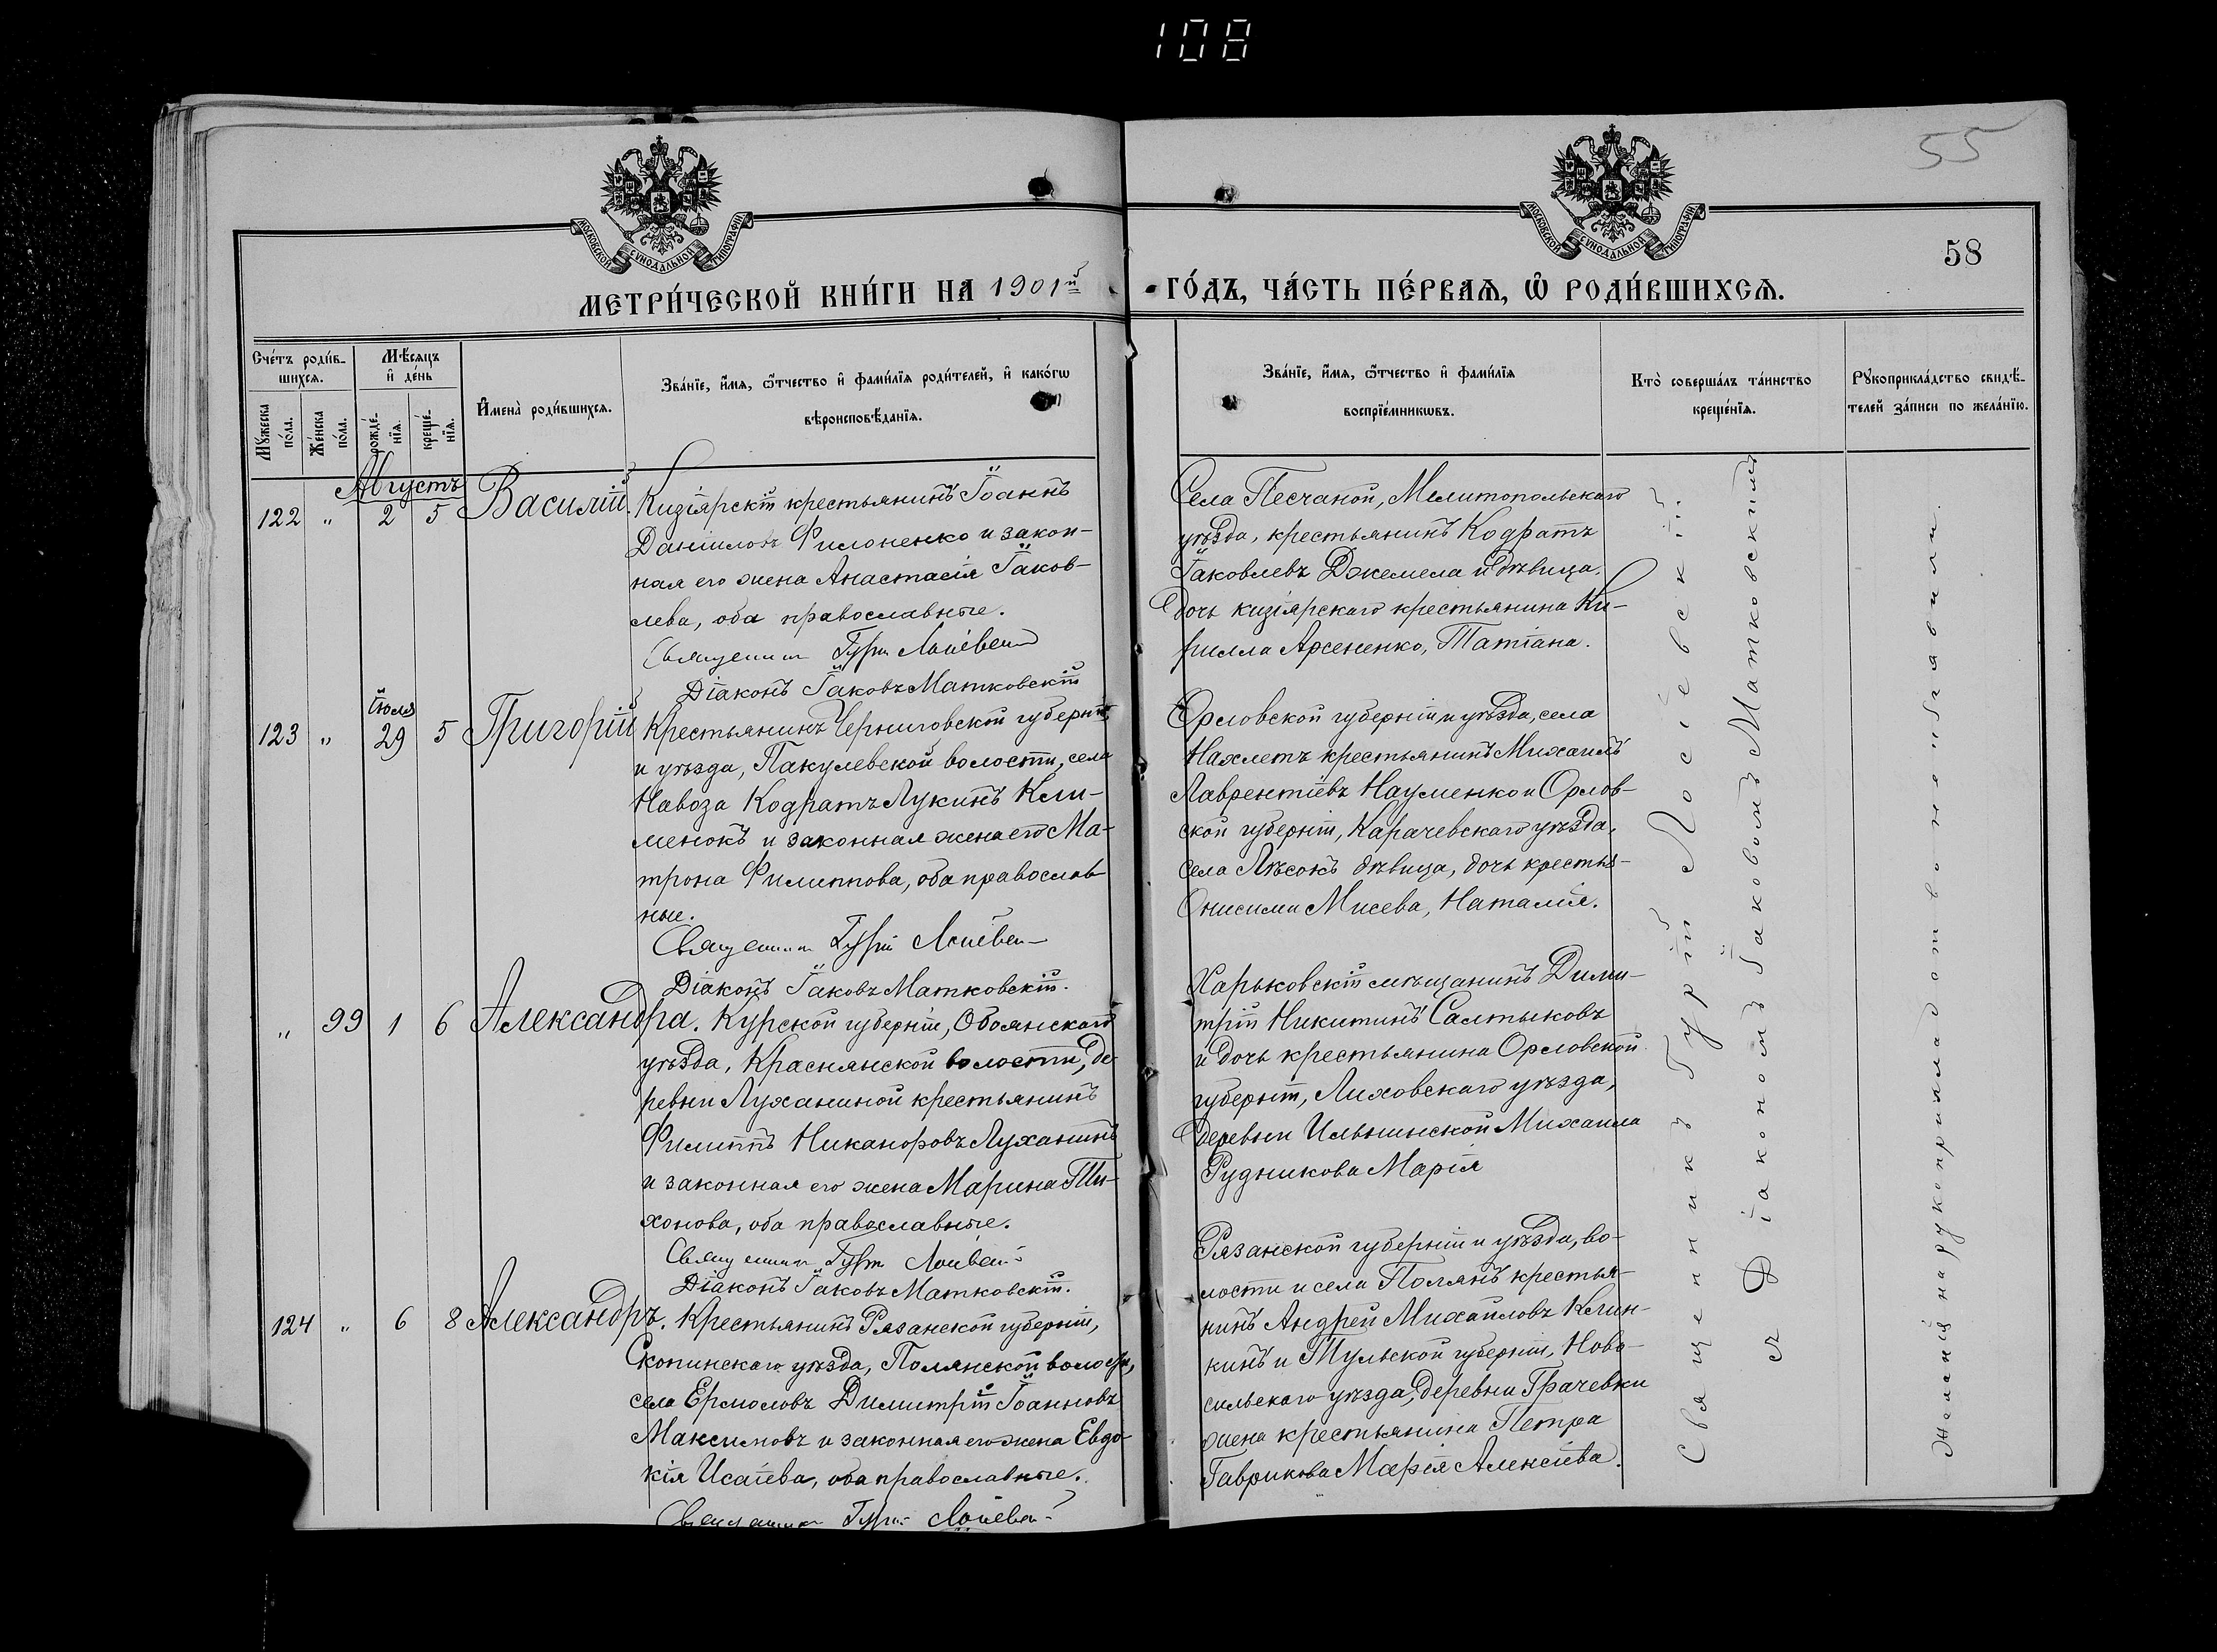 108
55
58
МОСКОВСКОЙ СУНОДАЛЬНОЙ ТИПОГРАФІИ
МОСКОВСКОЙ СУНОДАЛЬНОЙ ТИПОГРАФІИ
МЕТРИ́ЧЕСКОЙ КНИ́ГИ НА 1901й
ГО́ДЪ, ЧА́СТЬ ПЕ́РВАѦ, Ѡ҆ РОДИ́ВШИХСѦ.
Сче́тъ роди́в-
шихсѧ.
Мꙋ́жеска
по́ла.
Же́нска
по́ла.
Мѣ́сѧцъ
и҆ де́нь
рожде́-
нїѧ.
креще́-
нїѧ.
И҆мена̀ роди́вшихсѧ.
Зва́нїе, и҆́мѧ, ѻ҆́тчество и҆ фами́лїѧ роди́телей, и҆ како́гѡ
вѣроисповѣ́данїѧ.
Зва́нїе, и҆́мѧ, ѻ҆́тчество и҆ фами́лїѧ
воспрїе́мникѡвъ.
Кто̀ соверша́лъ та́инство
креще́нїѧ.
Рꙋкоприкла́дство свидѣ́-
телей за́писи по жела́нїю.
Августъ
122 " 2 5 Василій.
Кизіярскій крестьянинъ Іоаннъ
Даниловъ Филоненко и закон-
ная его жена Анастасія Іаков-
лева, оба православные.
Священникъ Гурій Лосіевскій
Діаконъ Іаковъ Матковскій
Села Песчаной, Мелитопольскаго
уѣзда, крестьянинъ Кодратъ
Іаковлевъ Джемела и дѣвица,
дочь кизіярскаго крестьянина Ки-
рилла Арсененко, Татіана.
Іюля
123 " 29 5 Григорій
Крестьянинъ Черниговской губерніи
и уѣзда, Пакулевской волости, села
Навоза Кодратъ Лукинъ Кли-
менокъ и законная жена его Ма-
трона Филиппова, оба православ-
ные.
Священникъ Гурій Лосіевскій
Діаконъ Іаковъ Матковскій.
Орловской губерніи и уѣзда, села
Нахлетъ крестьянинъ Михаилъ
Лаврентіевъ Науменко и Орлов-
ской губерніи, Карачевскаго уѣзда,
села Лѣсокъ дѣвица, дочь крестья-
Онисима Мисева, Наталія.
" 99 1 6 Александра.
Курской губерніи, Обоянскаго
уѣзда, Краснянской волости, де-
ревни Луханиной крестьянинъ
Филиппъ Никаноровъ Луханинъ
и законная его жена Марина Ти-
хонова, оба православные.
Священникъ Гурій Лосіевскій
Діаконъ Іаковъ Матковскій.
Харьковскій мѣщанинъ Дими-
трій Никитинъ Салтыковъ
и дочь крестьянина Орловской
губерніи, Лиховскаго уѣзда,
деревни Ильинской Михаила
Рудникова Марія
124 " 6 8 Александръ.
Крестьянинъ Рязанской губерніи,
Скопинскаго уѣзда, Полянской волости,
села Ермоловъ Димитрій Іоанновъ
Максимовъ и законная его жена Евдо-
кія Исаіева, оба православные.
Священникъ Гурій Лосіевскій
Рязанской губерніи и уѣзда, во-
лости и села Полянъ крестья-
нинъ Андрей Михайловъ Клин-
кинъ и Тульской губерніи, Ново-
сильскаго уѣзда, деревни Грачевки
жена крестьянина Петра
Гаврикова Марія Алексіева.
Священникъ Гурій Лосіевскій
съ Діакономъ Іаковомъ Матковскимъ
Желанія на рукоприкладство не изъявили.